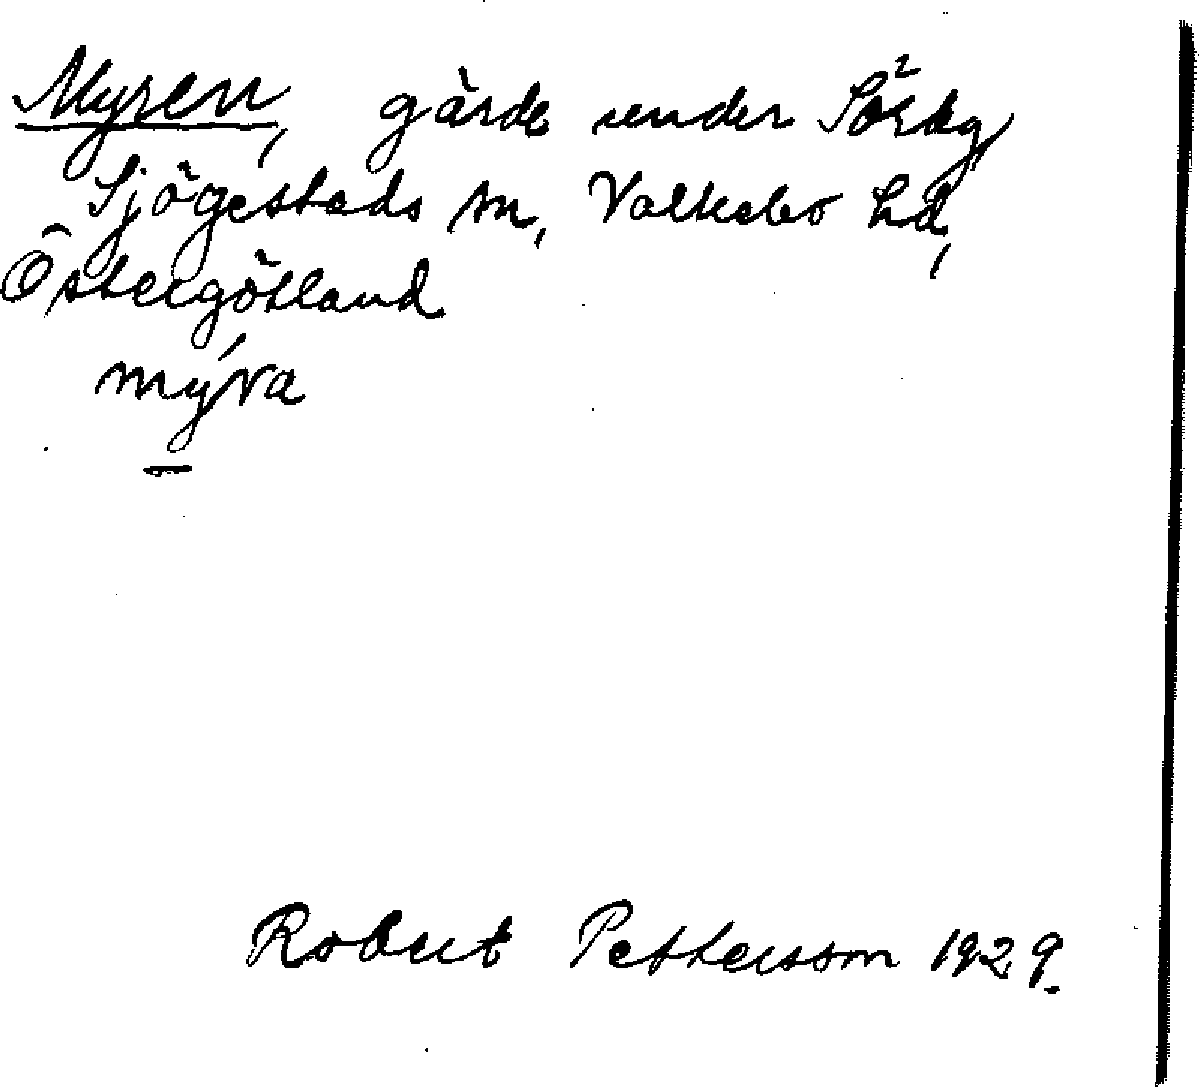 Myren, gärde under Sörby
Sjögestads sn, Valkebo hd,
Östergötland
mýra
Robert Pettersson 1929.